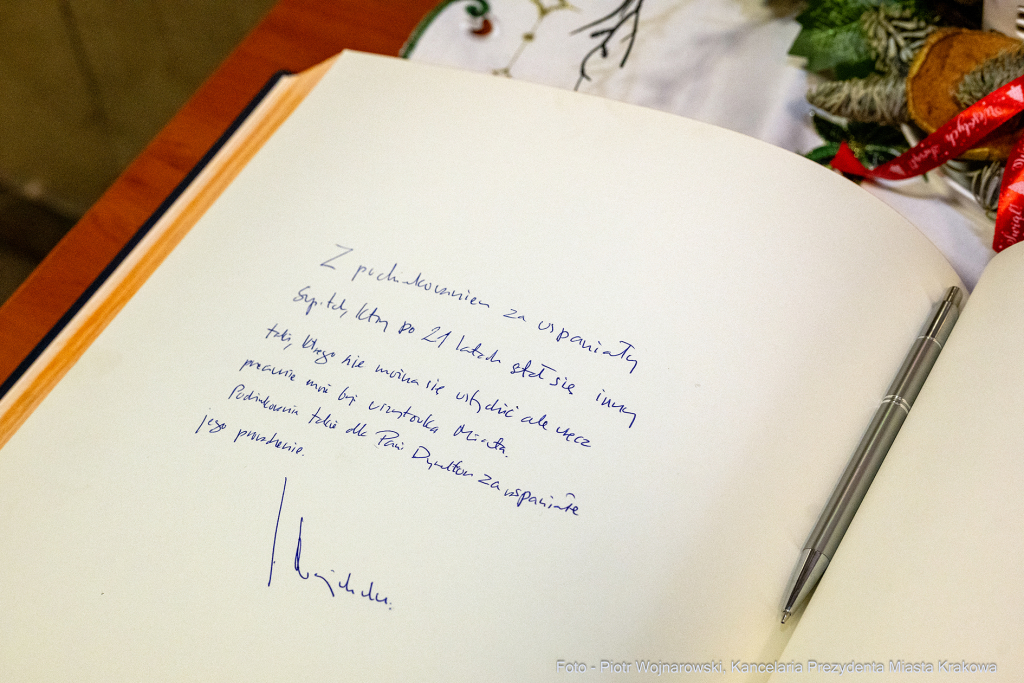 Z podziękowaniem za wspaniały
Szpital, który po 21 latach stał się inny
taki, którego nie można się wstydzić ale wręcz
przeciwnie może być wizytówką Miasta.
Podziękowania także dla Pani Dyrektor za wspaniałe
jego prowadzenie.
Wesołych Świąt!
Świąt!
Foto - Piotr Wojnarowski, Kancelaria Prezydenta Miasta Krakowa